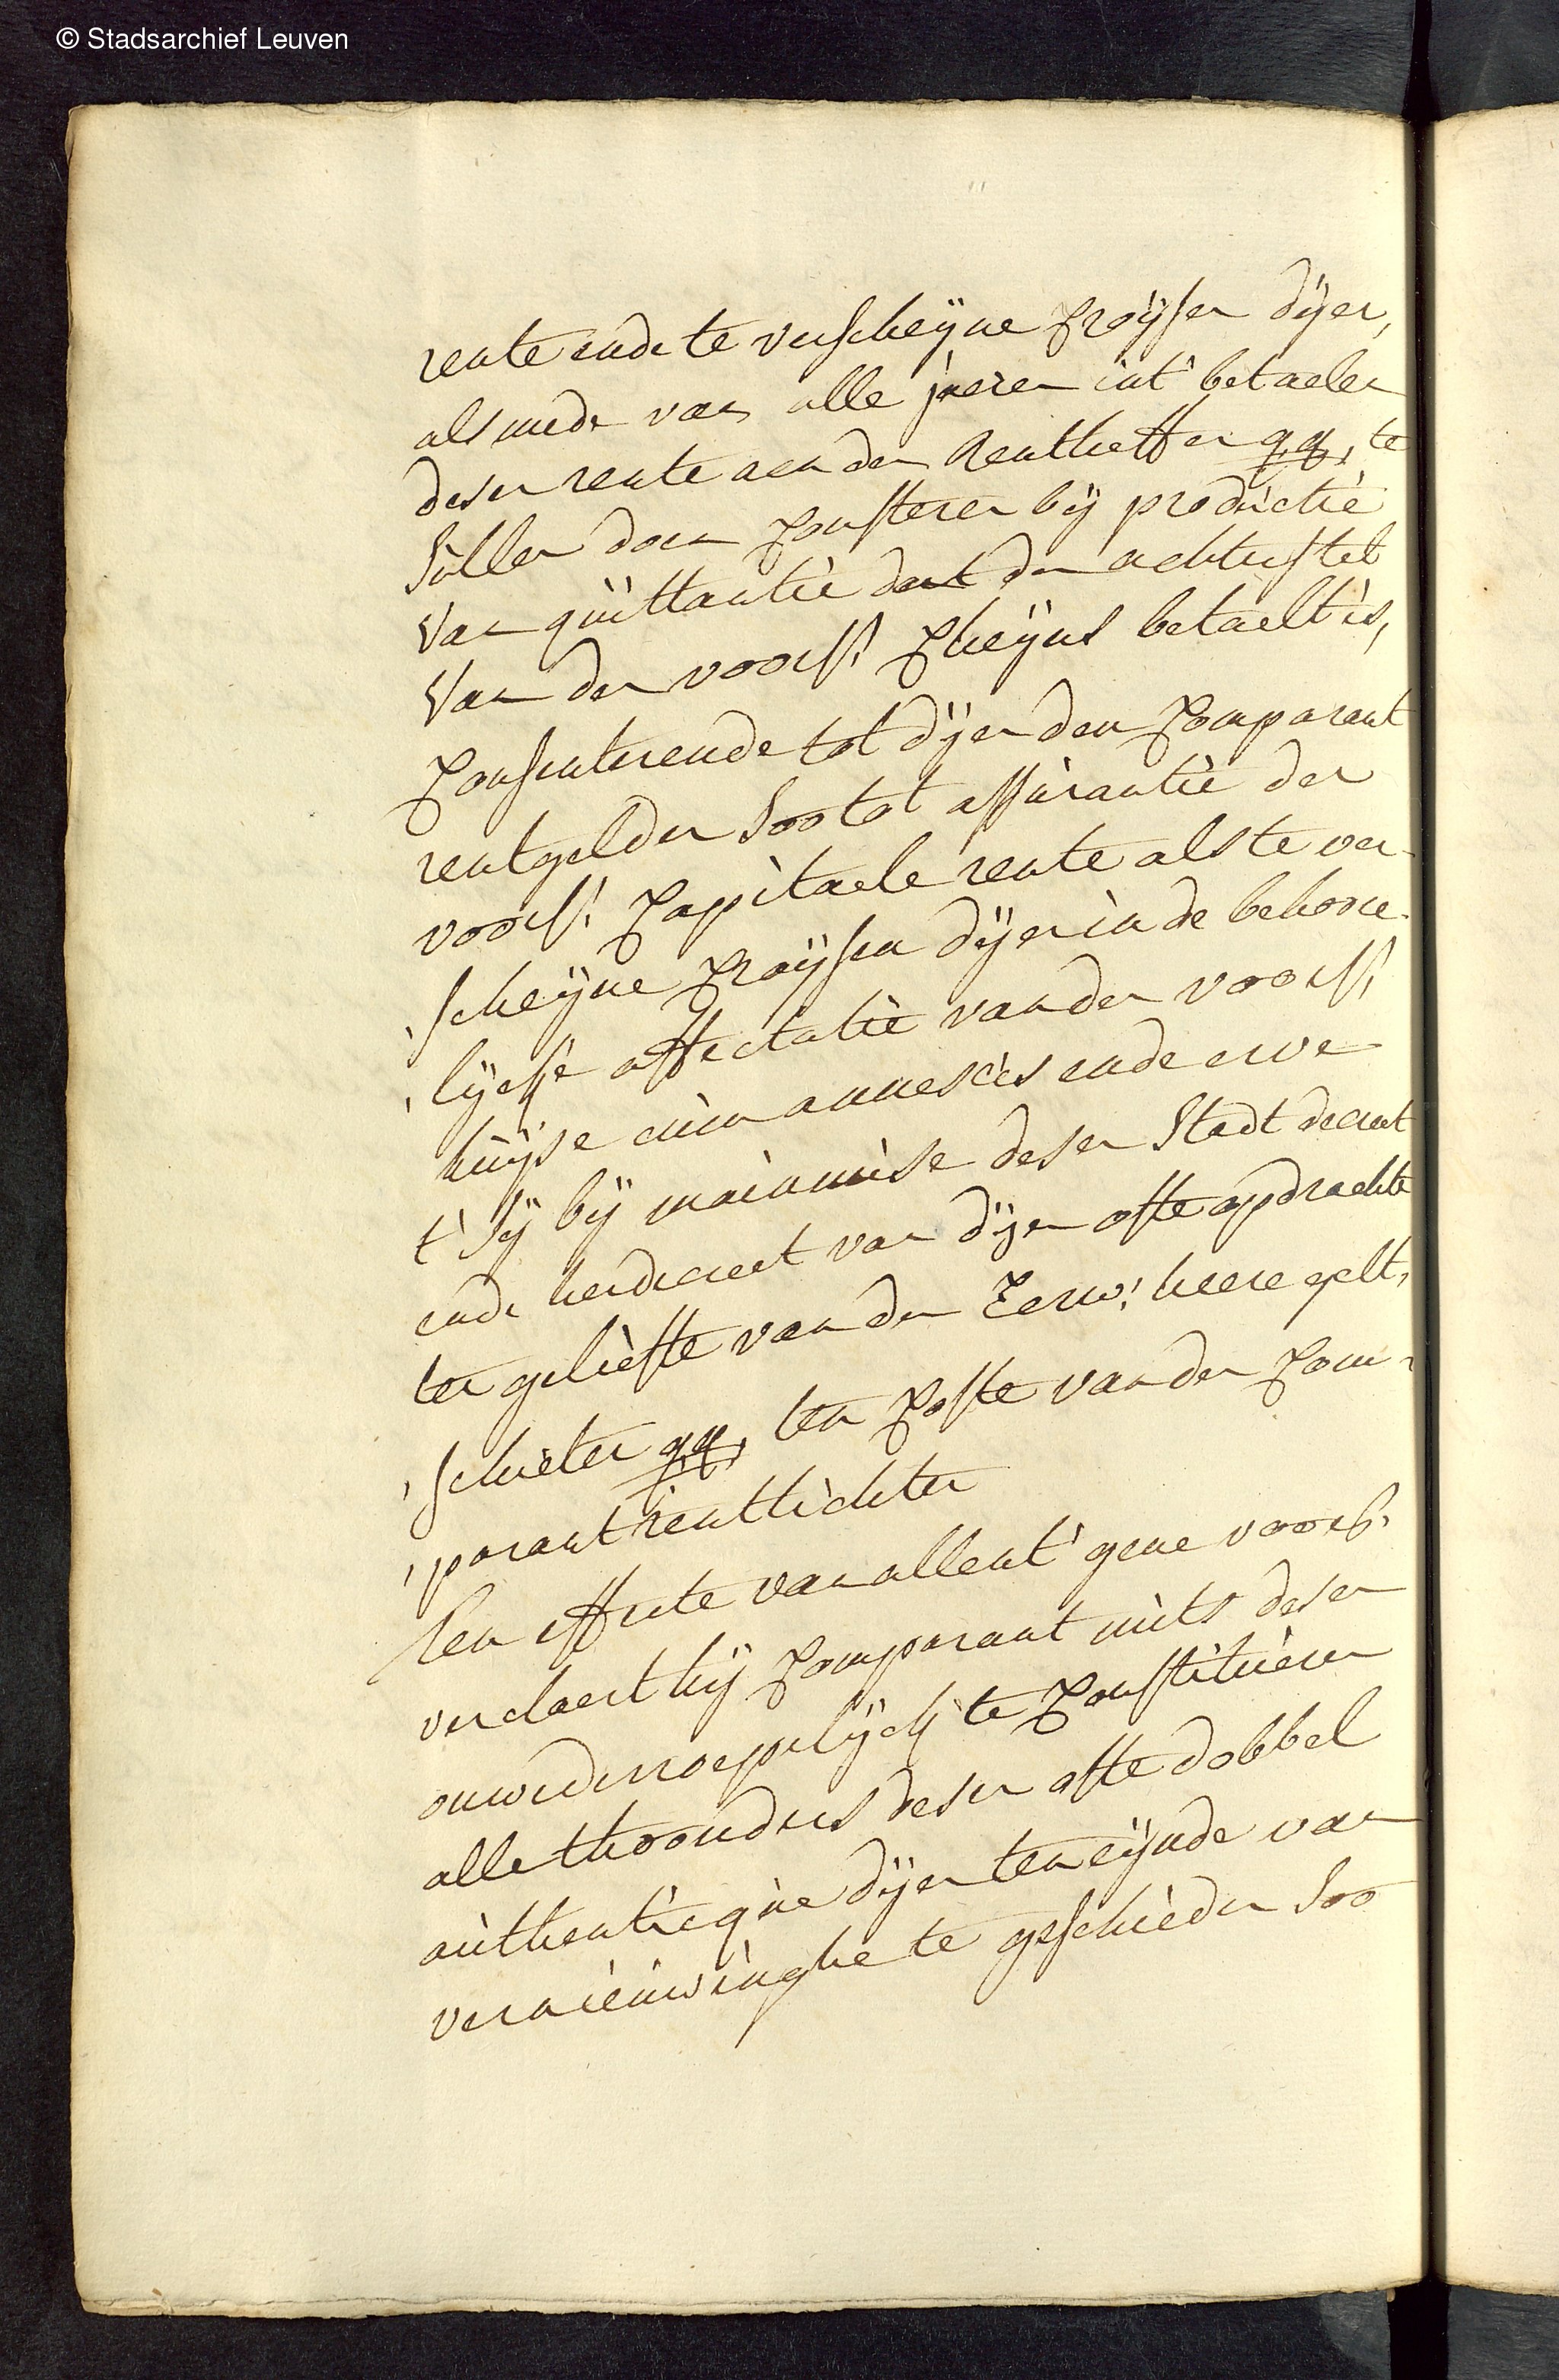 © Stadsarchief Leuven
rente ende te verscheijne Croijsen dijer,
als mede van alle jaeren int' betaelen
deser rente aen den Rentheffer qq, te
sullen doen Consteren bij productie
van quittantie dat den achterstel
van den voors: Cheijns betaelt is,
Consenterende tot dijen den Comparant
rentgelder soo tot assurantie der
voors: Capitaele rente als te ver-
scheijne Croijsen dijer in de behoore-
lijcke affectatie van den voors:
huijse cum annexis ende erve
t' sij bij mainmise deser Stadt decreet
ende herdecreet van dijen ofte opdrachte
ter geliefte van den Eerw: heere gelt,
schieter qq, ten Coste van den Com-
parant rentlichter
Ten effecte van allent' gene voors:
verclaert hij Comparant mits desen
onwederroeppelijck te Constitueren
alle thoonders deser ofte dobbel
authenticque dijer ten eijnde van
vernieuwinghe te geschieden soo